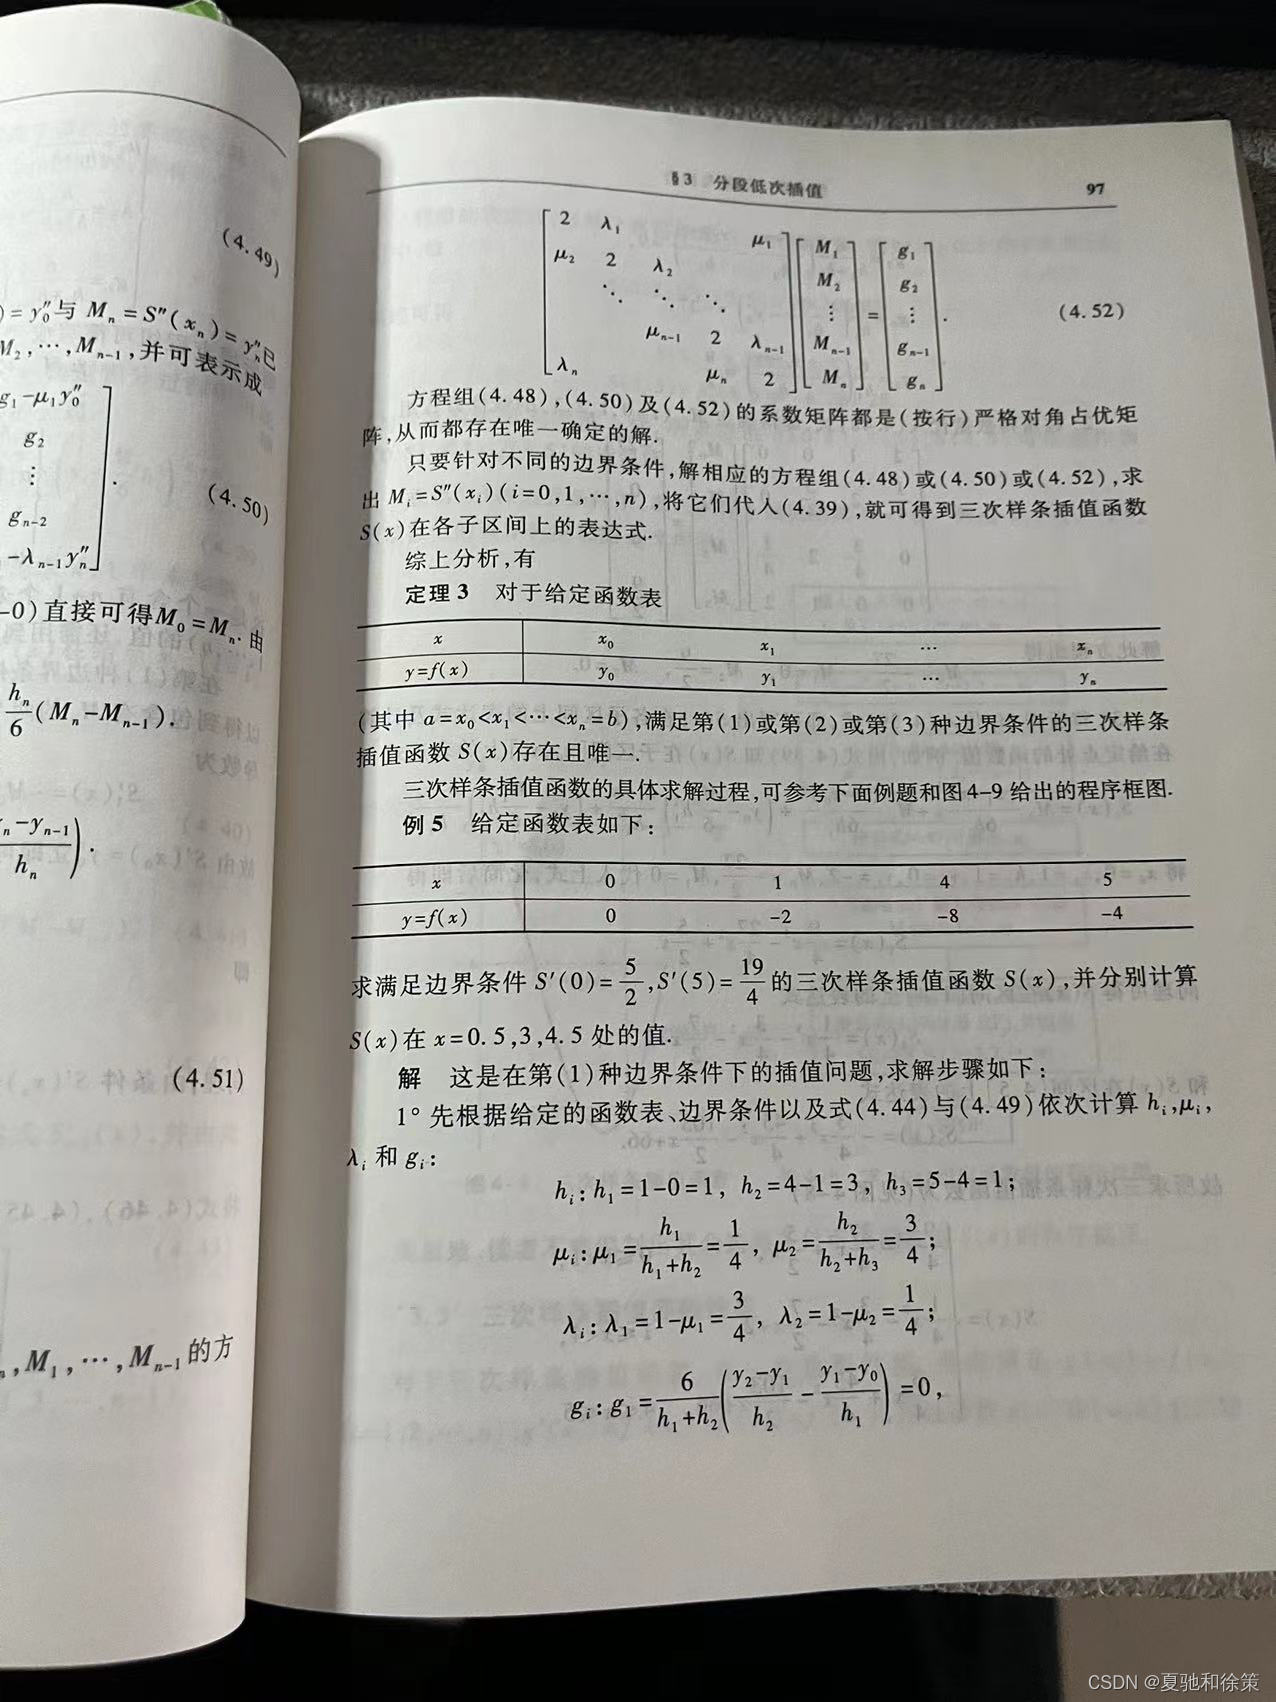 (4.49)
)=y″₀与 Mₙ=S″(xₙ)=y″ₙ已
M₂,⋯,Mₙ₋₁,并可表示成
g₁-μ₁y″₀
g₂
⋮
gₙ₋₂
-λₙ₋₁y″ₙ
.
(4.50)
-0)直接可得M₀=Mₙ.由
hₙ/6(Mₙ-Mₙ₋₁).
yₙ-yₙ₋₁/hₙ).
(4.51)
,M₁,⋯,Mₙ₋₁的方
§3 分段低次插值 97
[2 λ₁ μ₁] [M₁] [g₁]
[μ₂ 2 λ₂] [M₂] [g₂]
[⋱ ⋱ ⋱] [⋮] = [⋮]. (4.52)
[μₙ₋₁ 2 λₙ₋₁] [Mₙ₋₁] [gₙ₋₁]
[λₙ μₙ 2] [Mₙ] [gₙ]
方程组(4.48),(4.50)及(4.52)的系数矩阵都是(按行)严格对角占优矩
阵,从而都存在唯一确定的解.
只要针对不同的边界条件,解相应的方程组(4.48)或(4.50)或(4.52),求
出 Mᵢ=S″(xᵢ)(i=0,1,⋯,n),将它们代人(4.39),就可得到三次样条插值函数
S(x)在各子区间上的表达式.
综上分析,有
定理3 对于给定函数表
x x₀ x₁ ⋯ xₙ
y=f(x) y₀ y₁ ⋯ yₙ
(其中 a=x₀<x₁<⋯<xₙ=b),满足第(1)或第(2)或第(3)种边界条件的三次样条
插值函数 S(x)存在且唯一.
三次样条插值函数的具体求解过程,可参考下面例题和图4-9给出的程序框图.
例5 给定函数表如下:
x 0 1 4 5
y=f(x) 0 -2 -8 -4
求满足边界条件 S′(0)=5/2,S′(5)=19/4 的三次样条插值函数 S(x),并分别计算
S(x)在 x=0.5,3,4.5 处的值.
解 这是在第(1)种边界条件下的插值问题,求解步骤如下:
1° 先根据给定的函数表、边界条件以及式(4.44)与(4.49)依次计算 hᵢ,μᵢ,
λᵢ 和 gᵢ:
hᵢ:h₁=1-0=1, h₂=4-1=3, h₃=5-4=1;
μᵢ:μ₁=h₁/(h₁+h₂)=1/4, μ₂=h₂/(h₂+h₃)=3/4;
λᵢ:λ₁=1-μ₁=3/4, λ₂=1-μ₂=1/4;
gᵢ:g₁=6/(h₁+h₂)((y₂-y₁)/h₂-(y₁-y₀)/h₁)=0,
CSDN @夏驰和徐策